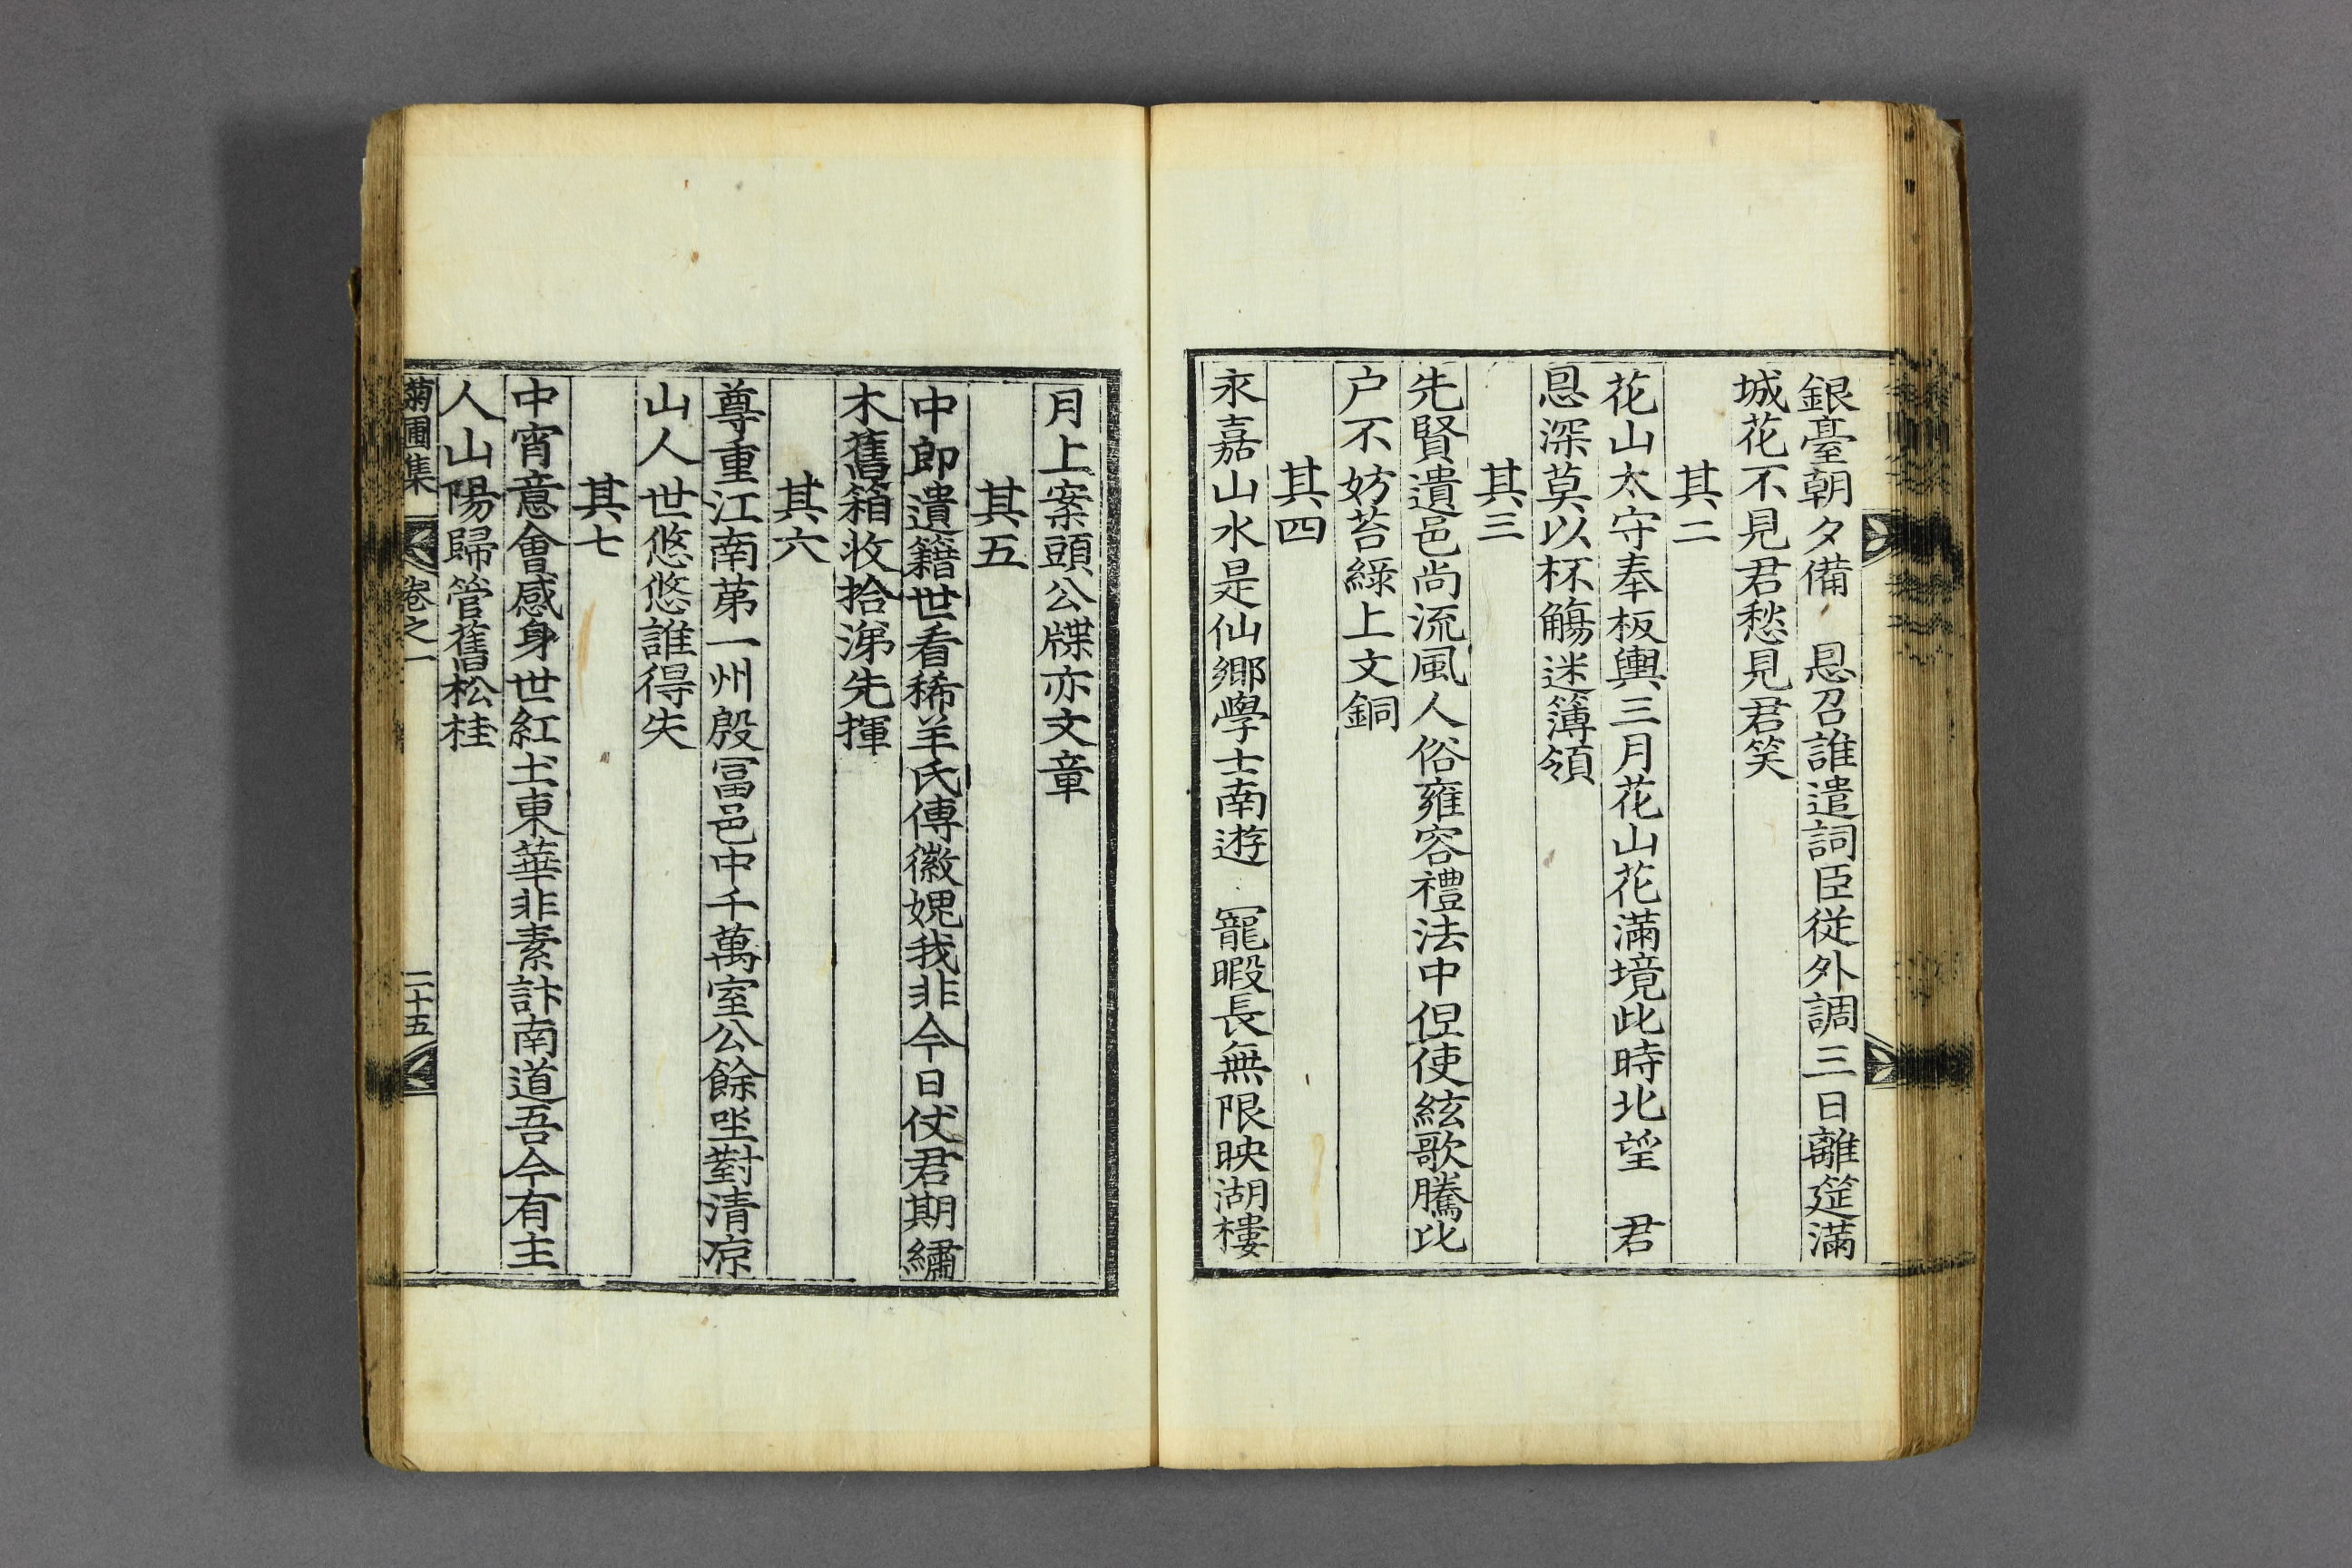 銀臺朝夕備 恩召誰遣詞臣從外調三日離筵滿
城花不見君愁見君笑
其二
花山太守奉板輿三月花山花滿境此時北望 君
恩深莫以杯觴迷簿領
其三
先賢遺邑尚流風人俗雍容禮法中但使絃歌騰比
户不妨苔綠上文銅
其四
永嘉山水是仙鄉學士南遊 寵暇長無限映湖樓
月上案頭公牒亦文章
其五
中郎遺籍世看稀羊氏傳徽媿我非今日仗君期繡
木舊箱收拾涕先揮
其六
尊重江南苐一州殷冨邑中千萬室公餘坐對清凉
山人世悠悠誰得失
其七
中宵意會感身世紅土東華非素計南道吾今有主
人山陽歸管舊松桂
菊圃集 卷之一 二十五